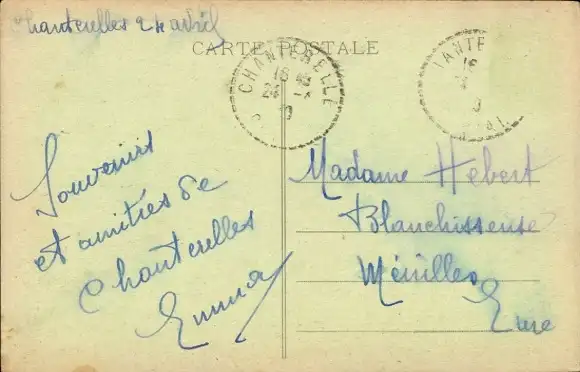 Chanterelles 24 avril
CARTE POSTALE
CHANTERELLE
Souvenirs
et amitiés de
Chanterelles
Emma
Madame Hebert
Blanchisseuse
Ménilles
Eure